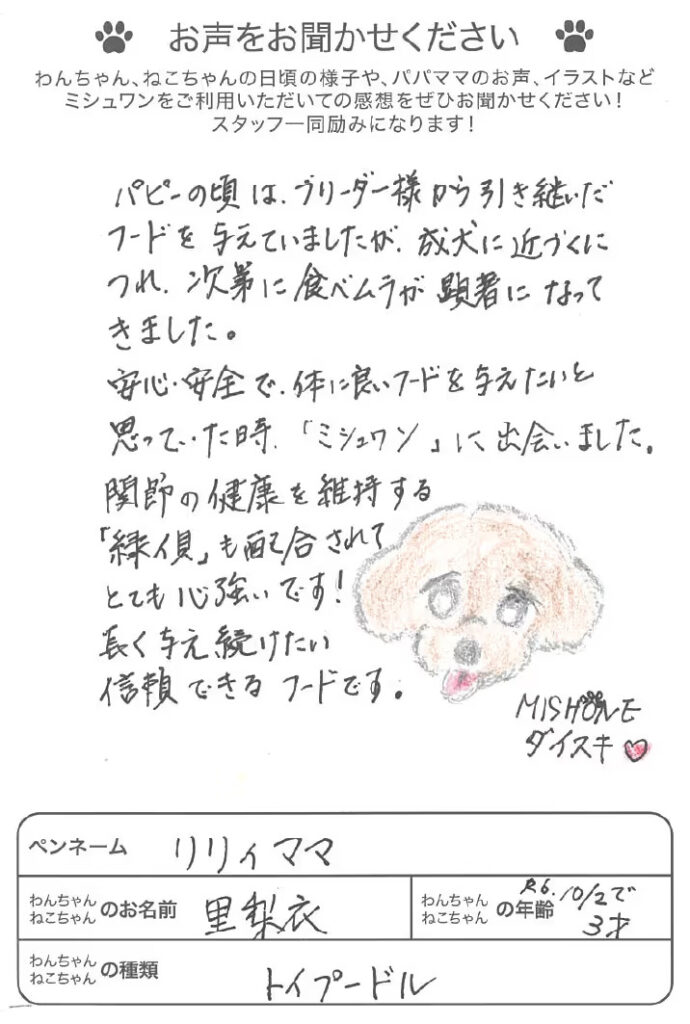 お声をお聞かせください
わんちゃん、ねこちゃんの日頃の様子や、パパママのお声、イラストなど
ミシュワンをご利用いただいての感想をぜひお聞かせください!
スタッフ一同励みになります!
パピーの頃は、ブリーダー様から引き継いだ
フードを与えていましたが、成犬に近づくに
つれ、次第に食べムラが顕著になって
きました。
安心・安全で、体に良いフードを与えたいと
思っていた時、「ミシュワン」に出会いました。
関節の健康を維持する
「緑イ貝」も配合されて
とても心強いです!
長く与え続けたい
信頼できるフードです。
MISHONE
ダイスキ
ペンネーム リリィママ
わんちゃん ねこちゃん のお名前 里梨衣
わんちゃん ねこちゃん の年齢 R6. 10/2で 3才
わんちゃん ねこちゃん の種類 トイプードル